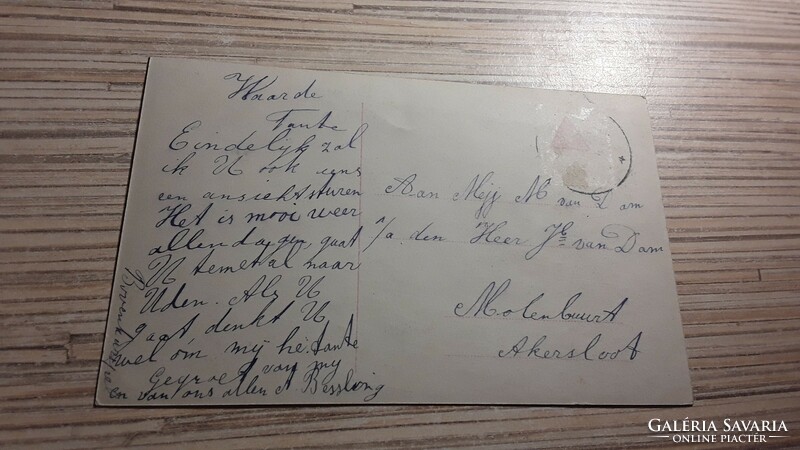 Waarde
Tante
Eindelijk zal
ik U ook eens
een ansicht sturen
Het is mooi weer
allen dagen gaat
U temet al naar
Uden. Als U
gaat denkt U
wel om mij hé. tante
Gegroet van my
en van ons allen A Bessling
Aan Mejj M van Dam
p/a. den Heer Je van Dam
Molenbuurt
Akersloot
GALÉRIA SAVARIA
ONLINE PIACTÉR